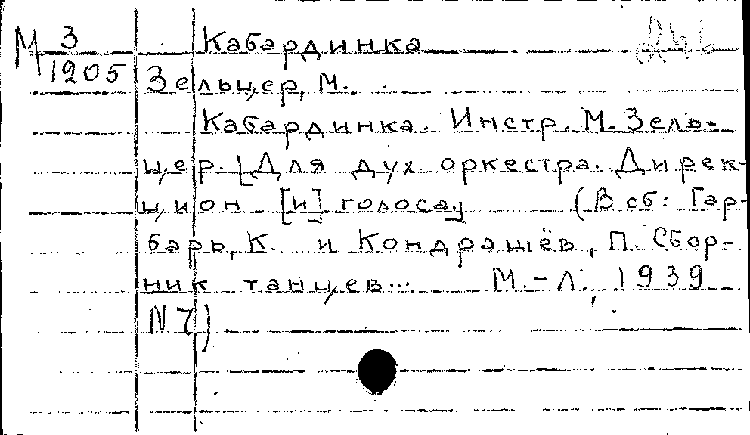 М 3 Кабардинка
1205 Зельцер, М.
Кабардинка. Инстр. М. Зель-
цер. [Для дух оркестра. Дирек-
цион [и] голоса] (В сб: Гар-
барь, К. и Кондрашёв, П. Сбор-
ник танцев... М.-Л., 1939
N 7)